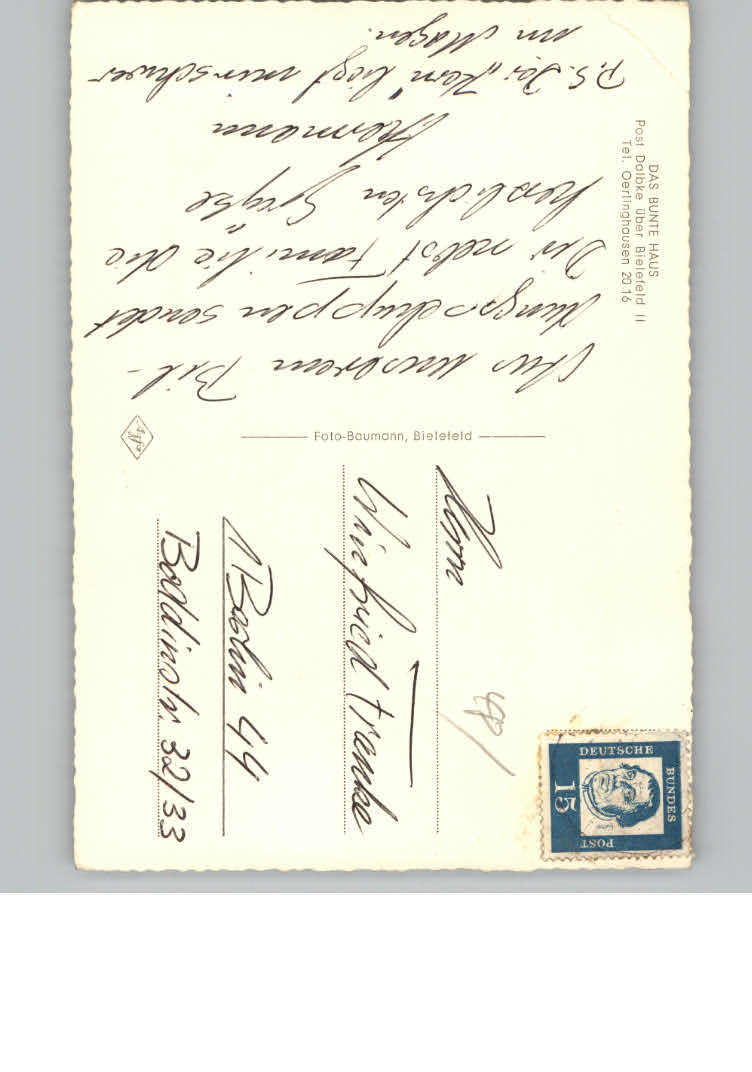 DAS BUNTE HAUS
Post Dalbke über Bielefeld II
Tel. Oerlinghausen 20 16
Aus unserem Bil-
dungsschuppen sendet
Dir nebst Familie die
herzlichsten Grüße
Hermann
P.S. Der „Korn" liegt mir schwer
im Magen.
Foto-Baumann, Bielefeld
Agfa
Herrn
Winfried Franke
1 Berlin 44
Boddinstr. 32/33
DEUTSCHE
BUNDES
POST
15